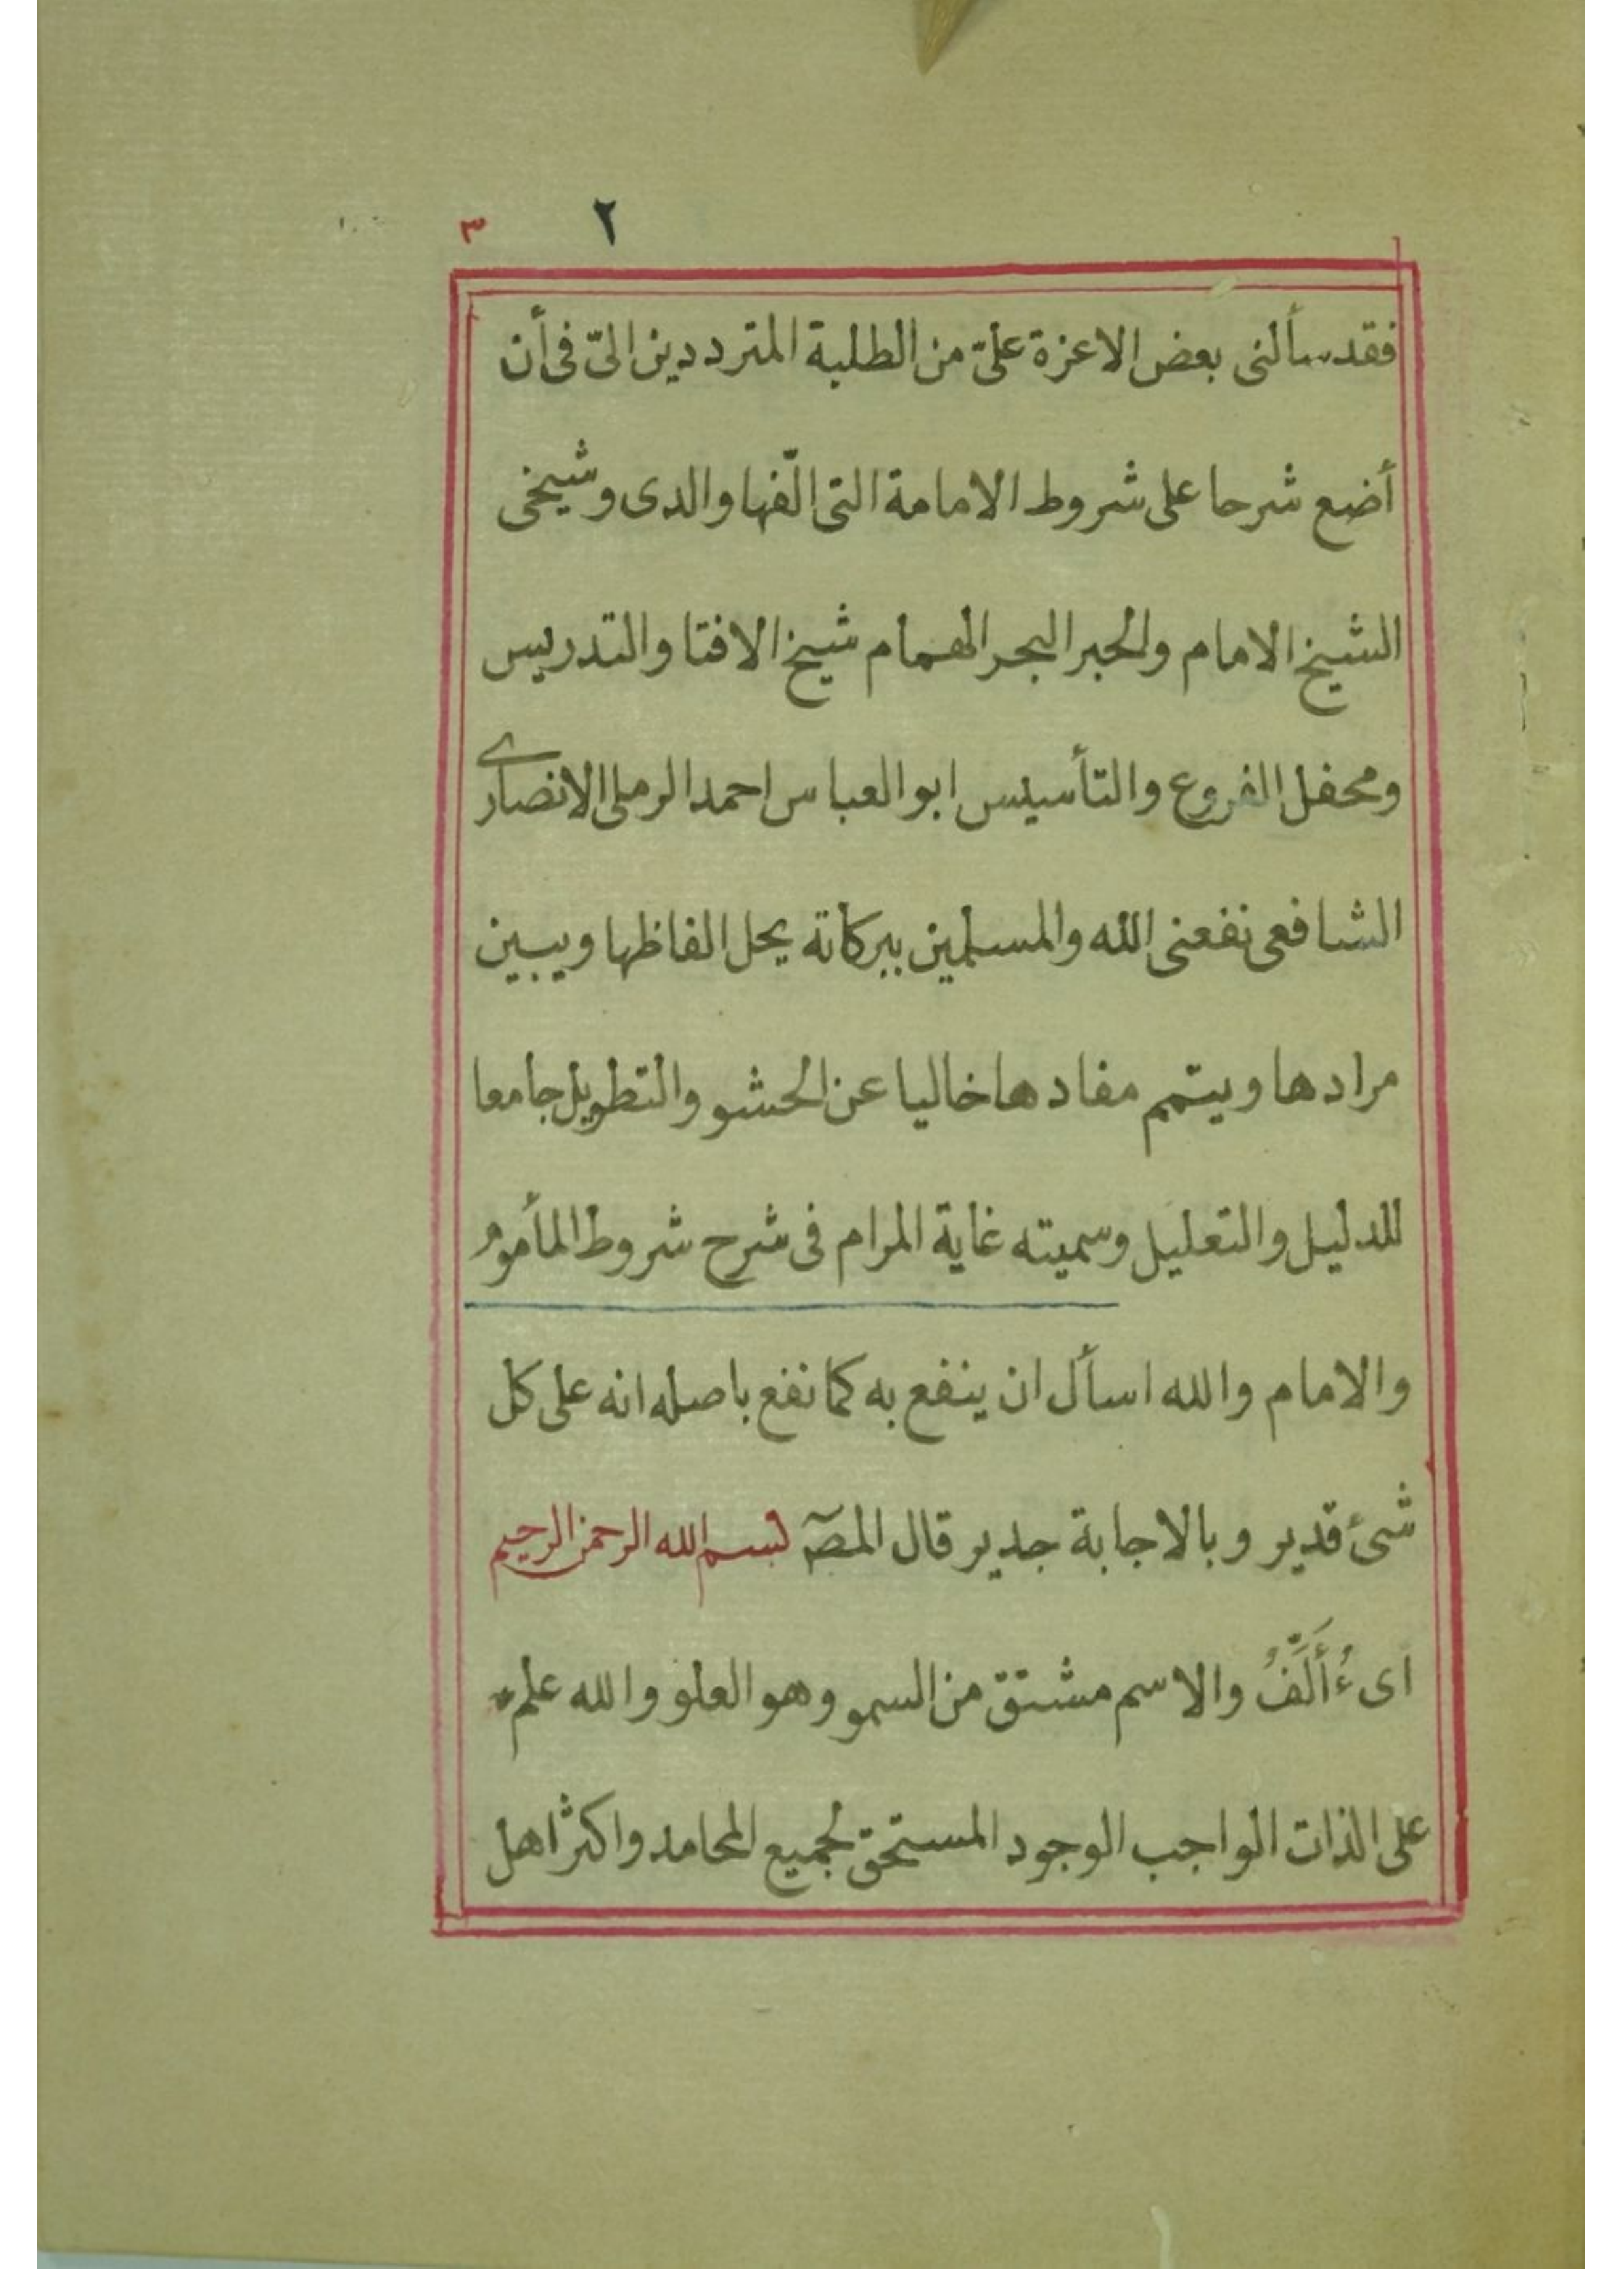 ٢ ٣
فقد سألنى بعض الاعزة علىّ من الطلبة المترددين الىّ فى أن
أضع شرحا على شروط الامامة التى الّفها والدى وشيخى
الشيخ الامام والحبر البحر الهمام شيخ الافتا والتدريس
ومحفل الفروع والتأسيس ابو العباس احمد الرملى الانصارى
الشافعى نفعنى الله والمسلمين ببركاته يحل الفاظها ويبين
مرادها ويتمم مفادها خاليا عن الحشو والتطويل جامعا
للدليل والتعليل وسميته غاية المرام فى شرح شروط المأموم
والامام والله اسأل ان ينفع به كما نفع باصله انه على كل
شىء قدير وبالاجابة جدير قال المصـ بسم الله الرحمن الرحيم
اى ءُأَلِّفُ والاسم مشتق من السمو وهو العلو والله علم
على الذات الواجب الوجود المستحق لجميع المحامد واكثر اهل